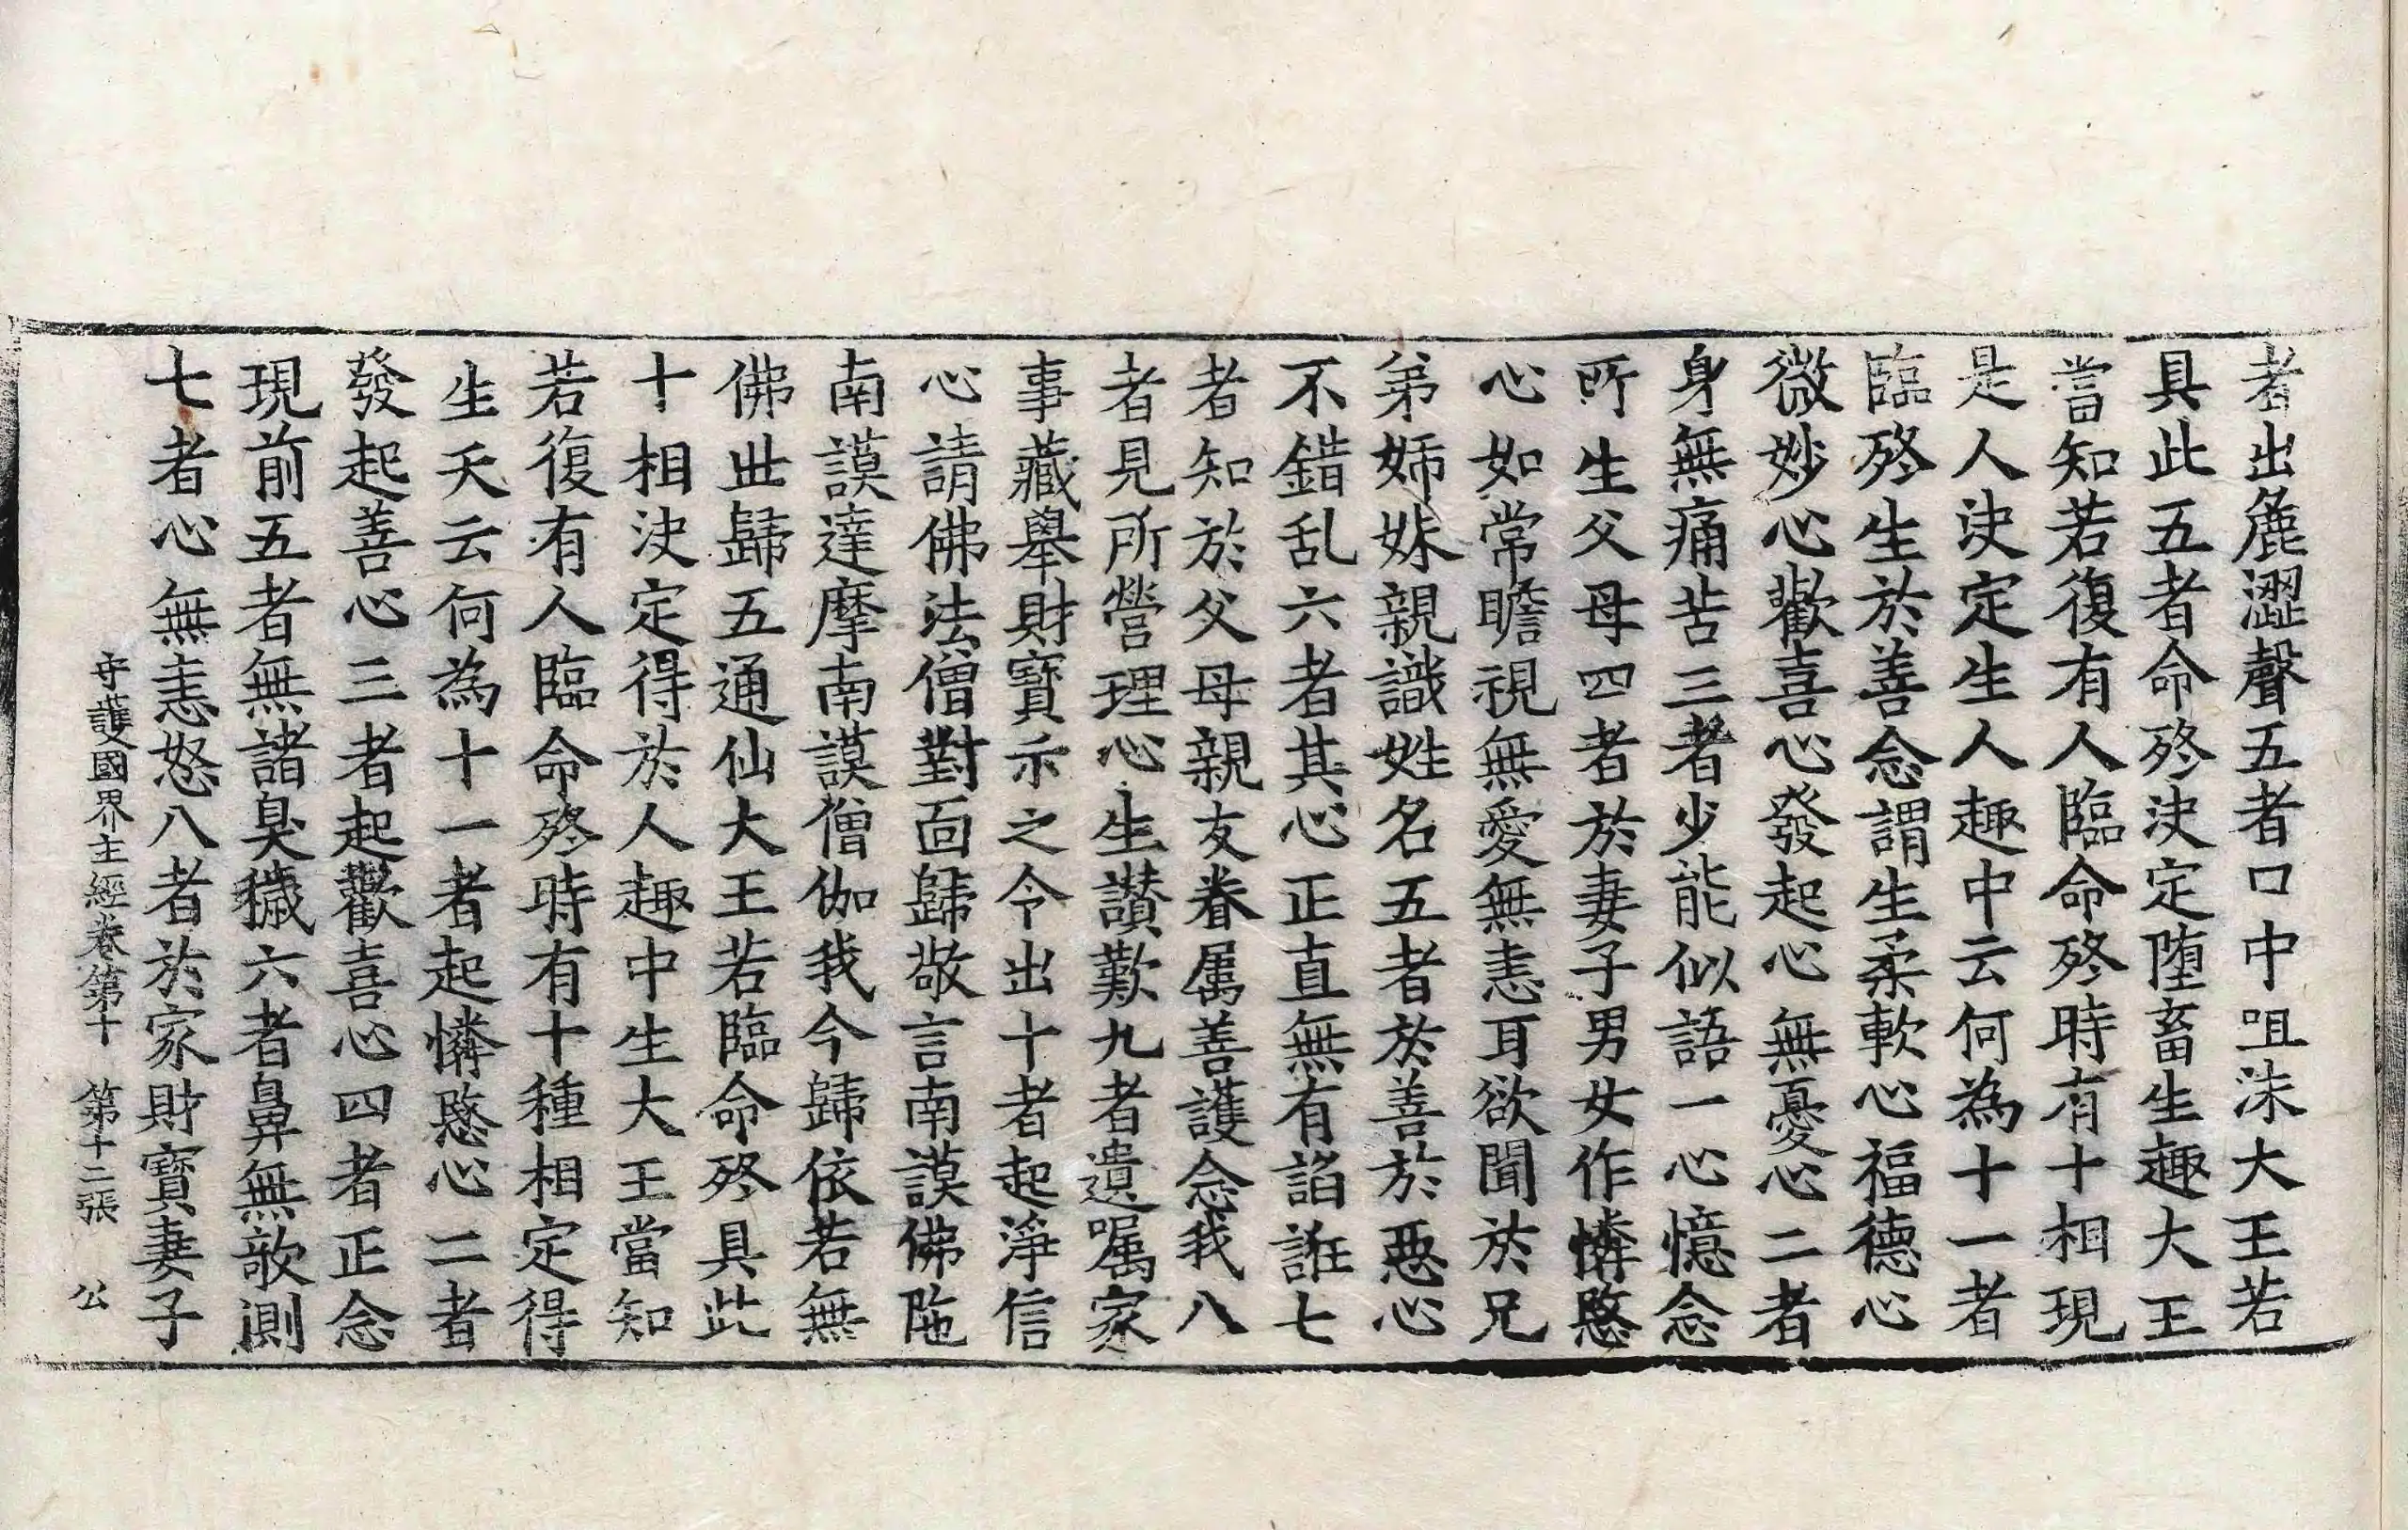 者出麁澀聲五者口中咀沫大王若
具此五者命殁決定墮畜生趣大王
當知若復有人臨命殁時有十相現
是人決定生人趣中云何為十一者
臨殁生於善念謂生柔軟心福德心
微妙心歡喜心發起心無憂心二者
身無痛苦三者少能似語一心憶念
所生父母四者於妻子男女作憐愍
心如常瞻視無愛無恚耳欲聞於兄
弟姊妹親識姓名五者於善於惡心
不錯乱六者其心正直無有諂誑七
者知於父母親友眷属善護念我八
者見所營理心生讃歎九者遺嘱家
事藏舉財寶示之令出十者起淨信
心請佛法僧對面歸敬言南謨佛陁
南謨達摩南謨僧伽我今歸依若無
佛世歸五通仙大王若臨命殁具此
十相決定得於人趣中生大王當知
若復有人臨命殁時有十種相定得
生天云何為十一者起憐愍心二者
發起善心三者起歡喜心四者正念
現前五者無諸臭穢六者鼻無欹側
七者心無恚怒八者於家財寶妻子
守護國界主經卷第十 第十二張 公